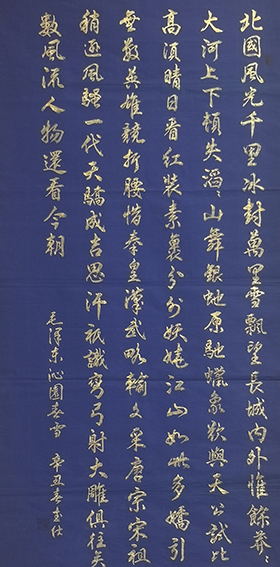 北國風光千里冰封萬里雪飄望長城內外惟餘莽々
大河上下頓失滔々山舞銀蛇原馳蠟象欲與天公試比
高須晴日看紅裝素裹分外妖嬈江山如此多嬌引
無數英雄競折腰惜秦皇漢武略輸文采唐宗宋祖
稍遜風騷一代天驕成吉思汗祇識彎弓射大雕俱往矣
數風流人物還看今朝
毛澤東沁園春雪 辛丑春